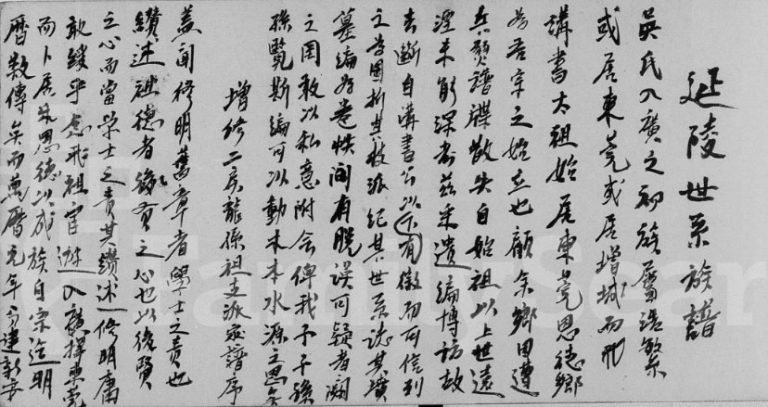 延陵世系族譜
吳氏入廣之初族屬浩繁
或居東莞或居增城而我
講書太祖始居東莞恩德鄉
為吾宗之始立也顧余鄉田遭
兵燹譜牒散失自始祖以上世遠
湮未能深考茲采遺編博訪故
老斷自講書公以下有徵而可信列
之為圖析其枝派紀其世系誌其墳
墓編為卷帙間有脫誤可疑者闕
之罔敢以私意附會俾我子子孫
孫覽斯編可以動木本水源之思矣
增修二房龍孫祖支派家譜序
蓋聞修明舊章者學士之責也
纘述祖德者後賢之心也以後賢
之心而當學士之責其纘述修明庸
敢緩乎我祖宦遊入廣擇東莞
而卜居恩德以成族自宋迄明
曆數傳矣而萬曆元年分建新安